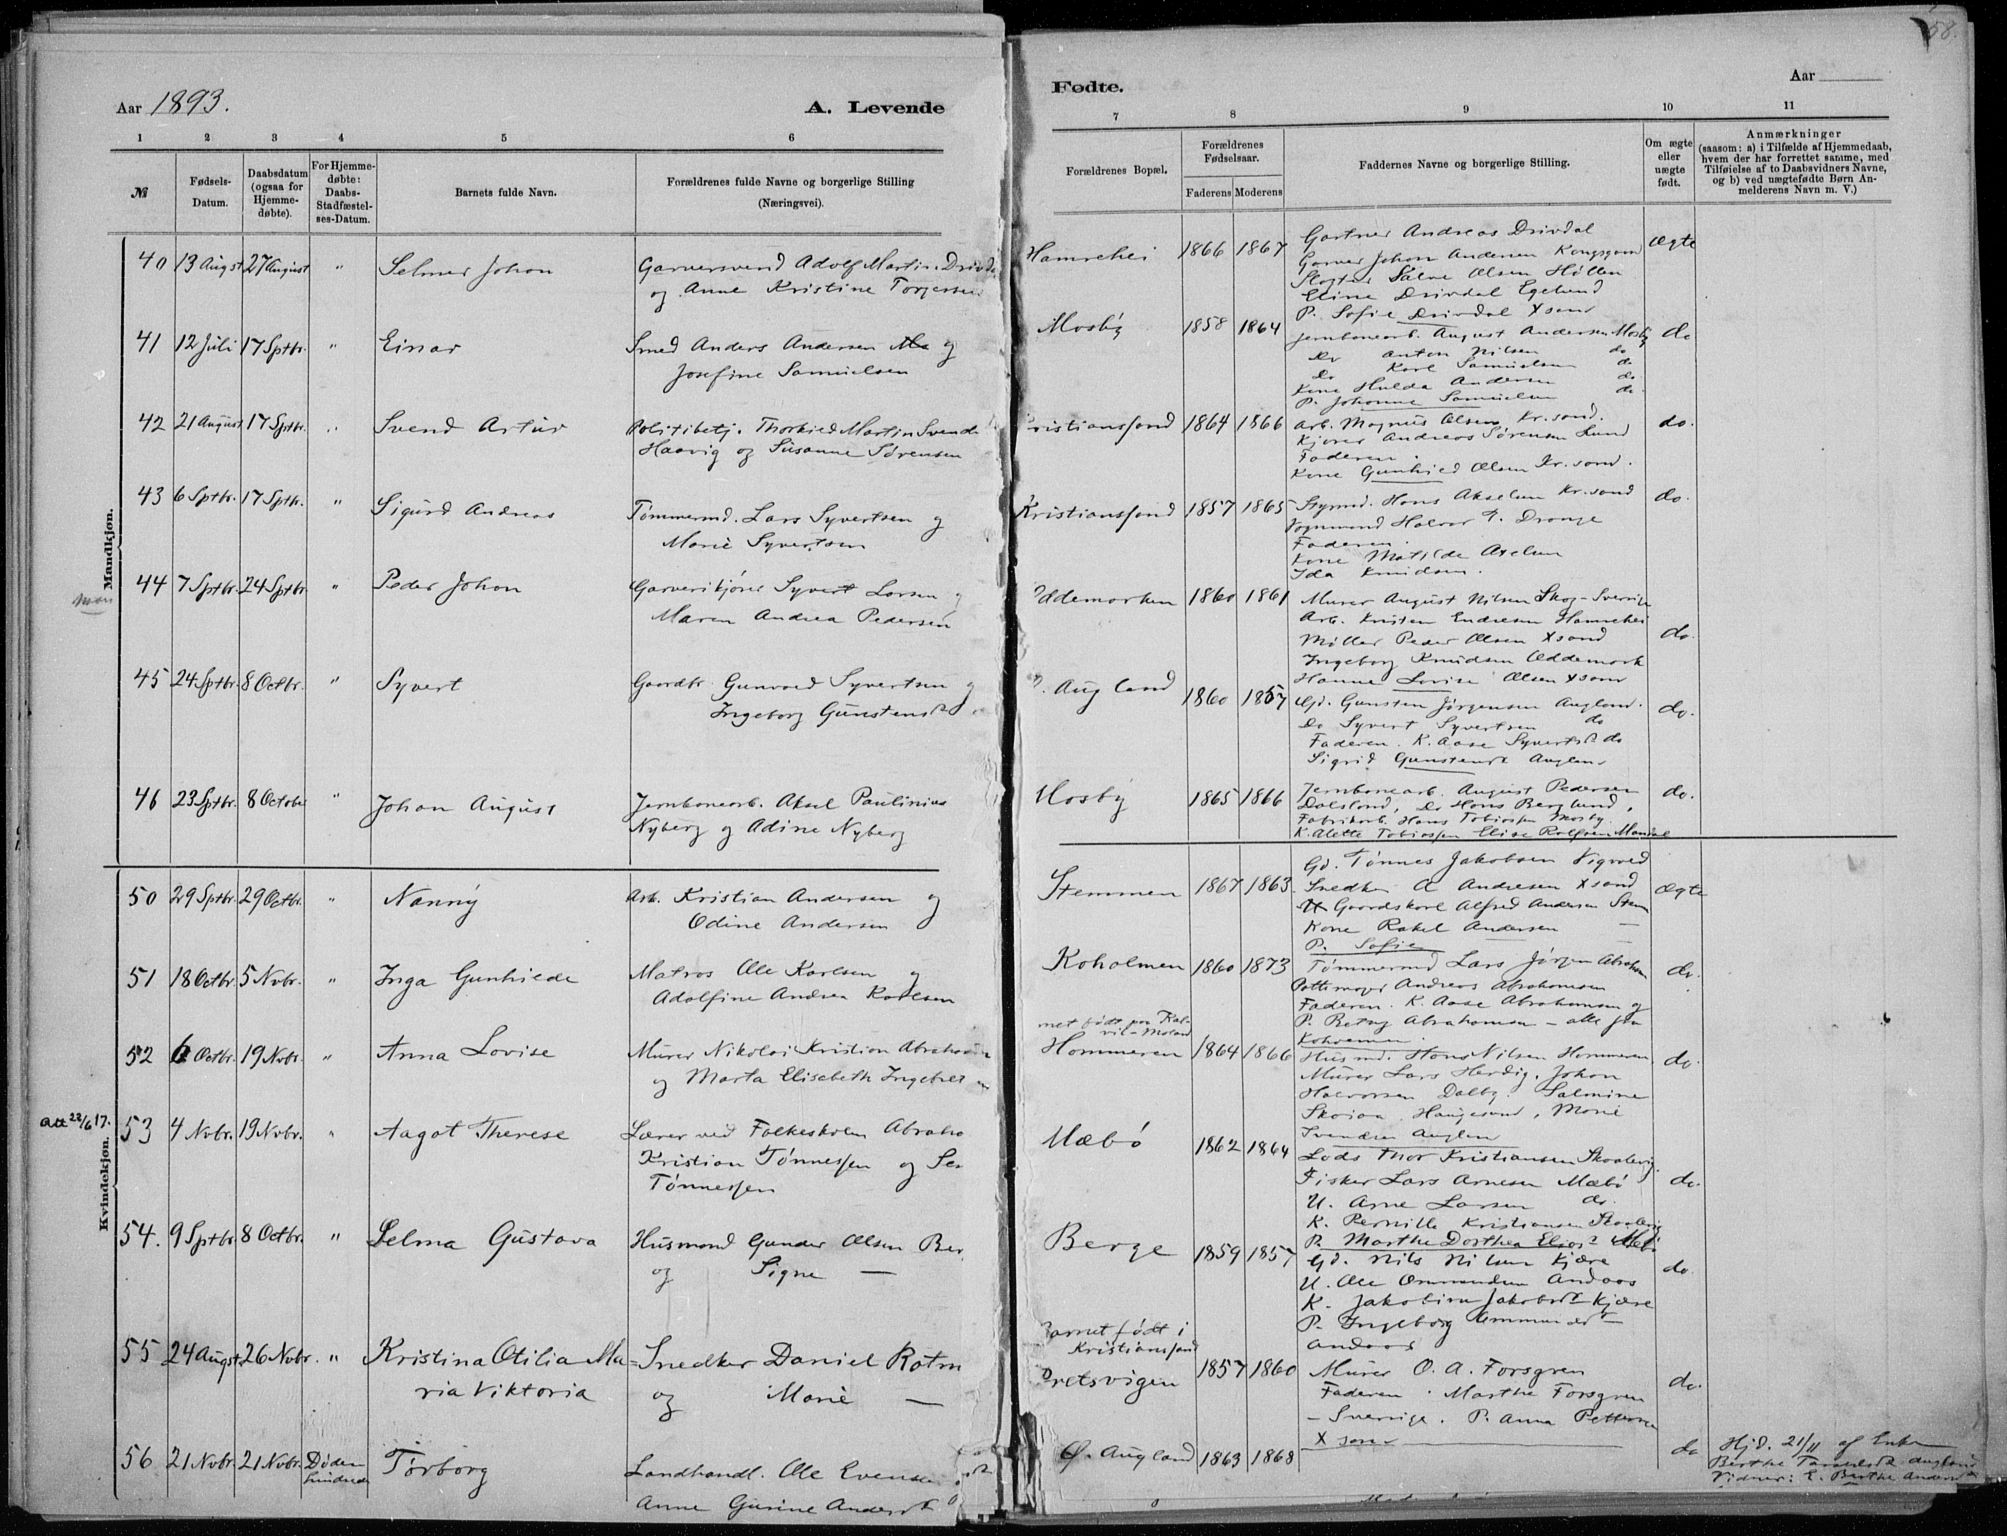 58.
Aar 1893.
A. Levende
Fødte.
Aar
1 2 3 4 5 6
7 8 9 10 11
№
Fødsels-Datum.
Daabsdatum (ogsaa for Hjemmedøbte).
For Hjemmedøbte: Daabs-Stadfæstelses-Datum.
Barnets fulde Navn.
Forældrenes fulde Navne og borgerlige Stilling
(Næringsvei).
Forældrenes Bopæl.
Forældrenes Fødselsaar.
Faderens Moderens
Faddernes Navne og borgerlige Stilling.
Om ægte eller uægte født.
Anmærkninger
(saasom: a) i Tilfælde af Hjemmedaab,
hvem der har forrettet samme, med
Tilføielse af to Daabsvidners Navne,
og b) ved uægtefødte Børn Anmelderens Navn m. V.)
Mandkjøn.
40 13 Augst 27 August " Selmer Johan
Garversvend Adolf Martin Drivda
og Anne Kristine Torjersen
Hamrehei 1866 1867
Gartner Andreas Drivdal
Garver Johan Andersen Kongsgaard
Slagter Salve Olsen Høllen
Eline Drivdal Egelund
P. Sofie Drivdal Xsand
ægte
41 12 Juli 17 Sptbr. " Einar
Smed Anders Andersen og
Josefine Samuelsen
Mosby 1858 1864
Jernbanearb. August Andersen Mosby
Do Anton Nilsen do
Do Karl Samuelsen do
Kone Hulda Andersen do
P. Johanne Samuelsen do
do
42 21 August 17 Sptbr. " Svend Artur
Politibetj. Martin Svends
Haavig og Susanne Sørensen
ristianssand 1864 1866
Arb. Magnus Olsen Kr.sand.
Kjører Andreas Sørensen Lund
Faderen.
Kone Gunhild Olsen Kr.sand.
do.
43 6 Sptbr. 17 Sptbr. " Sigurd Andreas
Tømmermd. Lars Syvertsen og
Marie Syvertsen
Kristianssand 1857 1865
Styrmd. Hans Akselsen Kr.sand
Vognmand Halvor T. Drange
Faderen.
Kone Matilde Axelsen
Ida Knudsen.
do.
44 7 Sptbr. 24 Sptbr. " Peder Johan
Garverikjører Syvert Larsen
Maren Andrea Pedersen
ddemarken 1860 1861
Murer August Nilsen Skog-Sverige
Arb. Kristen Endresen Hamrehei
Møller Peder Olsen Xsand
Ingeborg Knudsen Oddemark
Hanne Lovise Olsen Xsand
do.
45 24 Sptbr. 8 Octbr. " Syvert
Gaardbr. Gunvald Syvertsen
Ingeborg Gunstensdt
Augland 1860 1857
Gd. Gunsten Jørgensen Augland.
Do Syvert Syvertsen do
Faderen. K. Aase Syvertsdt do
Sigrid Gunstensdt Auglan
do.
46 23 Sptbr. 8 October " Johan August
Jernbanearb. Aksel Paulinius
Nyberg og Adine Nyberg
Mosby 1865 1866
Jernbanearb. August Pedersen
Dalsland, Do Hans Berglund,
Fabrikarb. Hans Tobiassen Mosby.
K. Alette Tobiassen Elise Rolfsen Mandal
do.
Kvindekjøn.
50 29 Sptbr. 29 Octbr. " Nanny
Arb. Kristian Andersen og
Odine Andersen
Stemmen 1867 1863
Gd. Tønnes Jakobsen Vigmed
Snedker A Andresen Xsand
Gaardskarl Alfred Andersen Stem
Kone Rakel Andersen —
P. Sofie —
ægte
51 18 Octbr. 5 Novbr. " Inga Gunhilde
Matros Ole Karlsen og
Adolfine Andrea Karlsen
Koholmen 1860 1873
Tømmermd Lars Jørgen Abraham
Pottemager Andreas Abrahamsen
Faderen. K. Aase Abrahamsen og
P. Betzy Abrahamsen – alle fra
Koholmen.
do.
52 6 Octbr. 19 Nvbr. " Anna Lovise
Murer Nikolai Kristian Abrahams
og Marta Elisabeth Ingebret
Hommeren 1864 1866
Husmd. Hans Nilsen Hommeren
Murer Lars Herdig. Johan
Halvorsen Dalby. Salmine
Skojaa, Haugesund, Marie
Svendsen Auglan
do.
att 22/6 17.
53 4 Nvbr. 19 Nvbr. " Aagot Therese
Lærer ved Folkeskolen Abraha
Kristian Tønnessen og Se
Tønnessen
Mæbø 1862 1864
Lods Thor Kristiansen Skaalevig.
Fisker Lars Arnesen Mæbø
U. Arne Larsen do.
K. Pernille Kristiansen Skaalevig
P. Marthe Dorthea Mæbø
do.
54. 9 Sptbr. 8 Octbr. " Selma Gustava
Husmand Gunder Olsen Ber
og Signe —
Berge 1859 1857
Gd. Nils Nilsen Kjære
U. Ole Ommundsen Andaas
K. Jakobine Jakobsdt Kjære
P. Ingeborg Ommundsdt
Andaas
do.
55 24 Augst. 26 Nvbr. " Kristina Otilia Ma-
ria Viktoria
Snedker Daniel Rotm
og Marie —
Barnet født i
Kristianssand
retsvigen 1857 1860
Murer O. A. Forsgren
Faderen. Marthe Forsgren
– Sverrige. P. Anna Pettersen
X sand
do.
56 21 Nvbr. 21 Nvbr. Døden
Torborg
Landhandl. Ole Evense
Anne Gurine Andersdt
Ø. Augland 1863 1868
do
Hjd. 21/11 af Enke
Berthe Augland
Vidner: E. Berthe Andersd